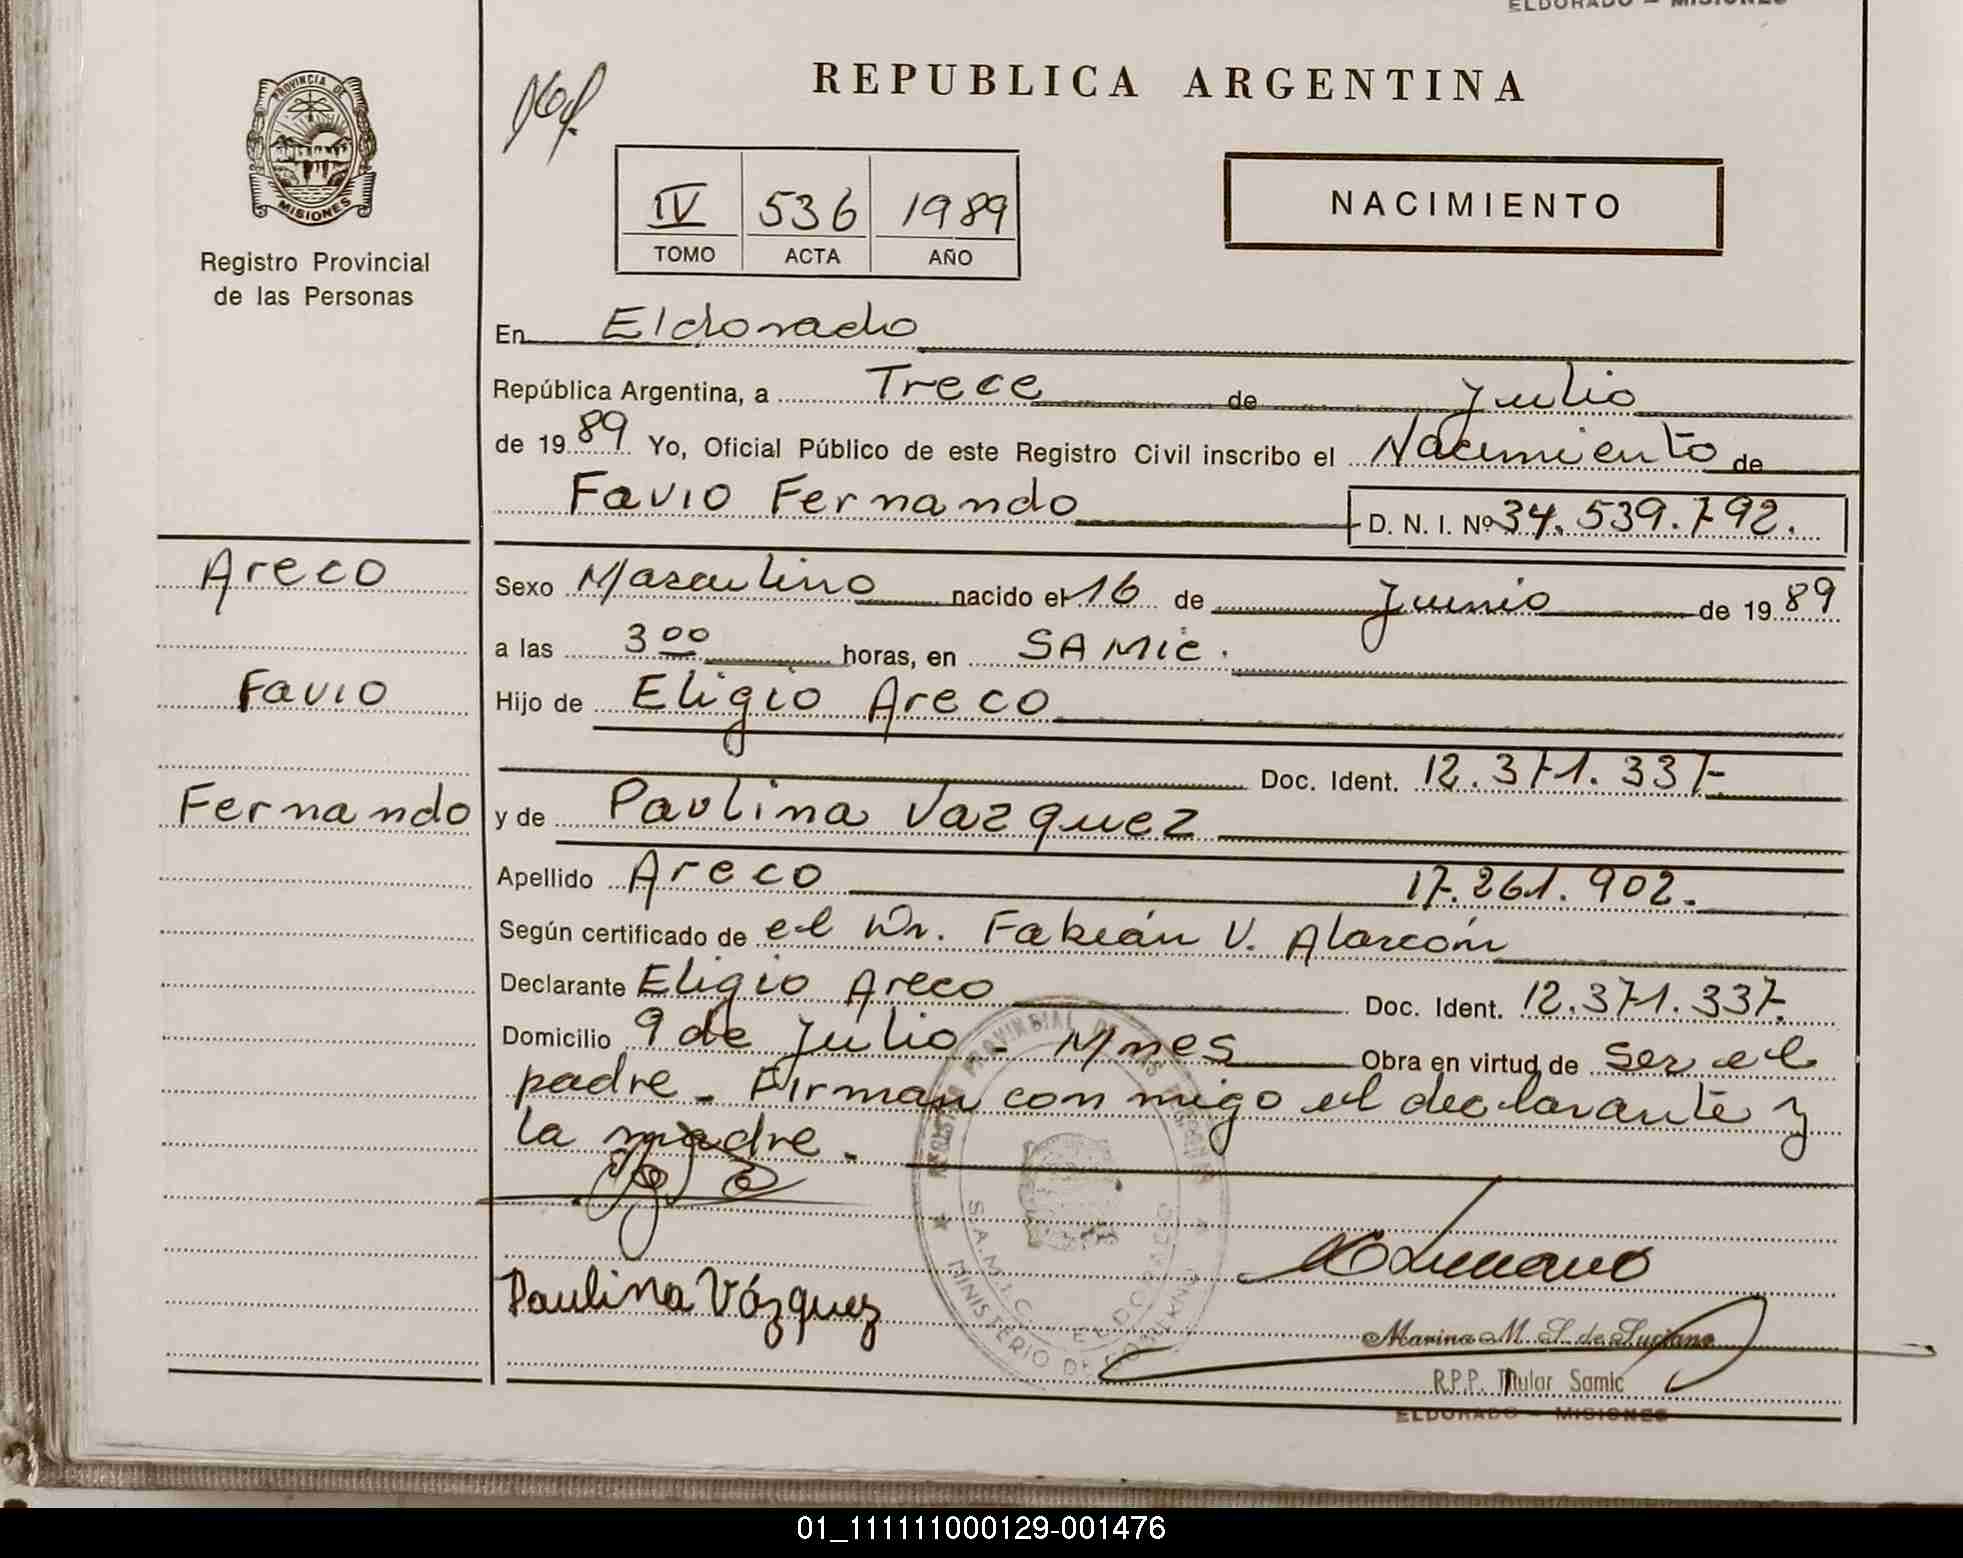 ELDORADO – MISIONES
REPUBLICA ARGENTINA
PROVINCIA DE
MISIONES
Registro Provincial
de las Personas
IV 536 1989
TOMO ACTA AÑO
NACIMIENTO
En Eldorado
República Argentina, a Trece de Julio
de 1989 Yo, Oficial Público de este Registro Civil inscribo el Nacimiento de
Favio Fernando D. N. I. Nº 34.539.792.
Areco
Favio
Fernando
Sexo Masculino nacido el 16 de Junio de 1989
a las 3 00 horas, en SAMic.
Hijo de Eligio Areco
Doc. Ident. 12.371.337-
y de Paulina Vazquez
Apellido Areco 17.261.902.
Según certificado de el Dr. Fabián V. Alarcón
Declarante Eligio Areco Doc. Ident. 12.371.337.
Domicilio 9 de Julio - Mnes Obra en virtud de ser el
padre - Firman con migo el declarante y
la madre -
REGISTRO PROVINCIAL DE LAS PERSONAS
S.A.M.I.C. ELDORADO
MINISTERIO DE GOBIERNO
Paulina Vázquez
Marina M. S. de Luciano
R.P.P. Titular Samic
ELDORADO – MISIONES
01_111111000129-001476